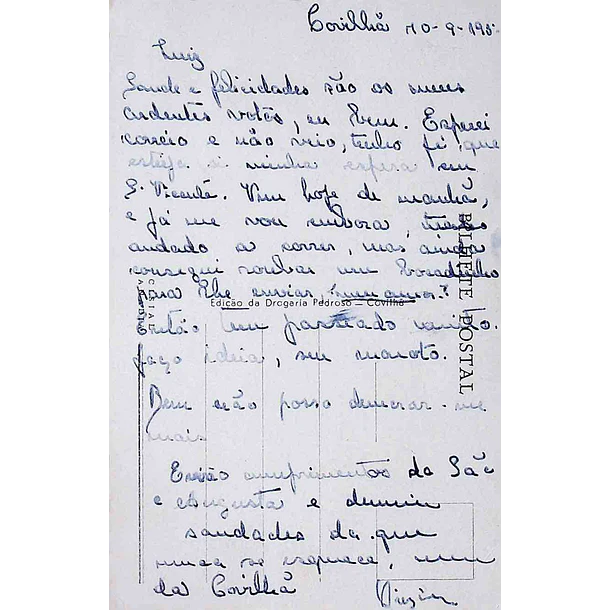 Covilhã 10-9-195
Luiz
Saude e felicidades são os meus
ardentes votos, eu bem. Esperei
correio e não veio, tenho fé que
esteja á minha espera em
S. Vicente. Vim hoje de manhã,
e já me vou embora,
andado a correr, mas ainda
consegui roubar um bocadinho
para lhe enviar
Edição da Drogaria Pedroso — Covilhã
Então tem passeado muito.
faço ideia, seu maroto.
Bem não posso demorar-me
mais
Envião cumprimentos da São
e Augusta e de mim
saudades da que
nunca se esquece,
da Covilhã
BILHETE POSTAL